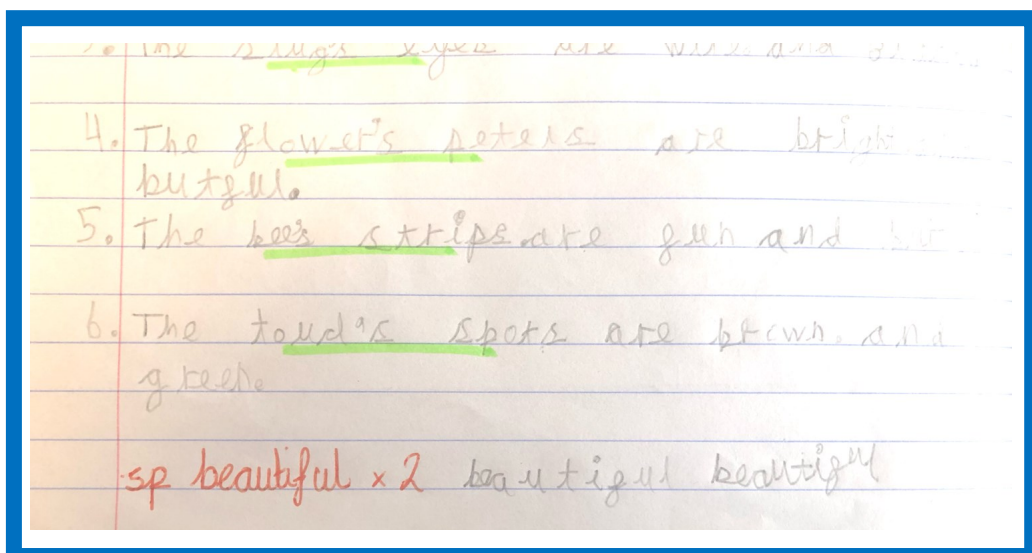 The slugs eyes are
4. The flower's petels are bright
butful.
5. The bee's strips are fun and
6. The toud's spots are brown. and
green.
sp beautiful × 2 beautiful beautiful